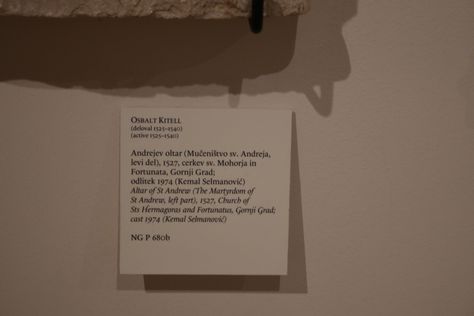 OSBALT KITELL
(deloval 1525–1540)
(active 1525–1540)
Andrejev oltar (Mučeništvo sv. Andreja,
levi del), 1527, cerkev sv. Mohorja in
Fortunata, Gornji Grad;
odlitek 1974 (Kemal Selmanović)
Altar of St Andrew (The Martyrdom of
St Andrew, left part), 1527, Church of
Sts Hermagoras and Fortunatus, Gornji Grad;
cast 1974 (Kemal Selmanović)
NG P 680b